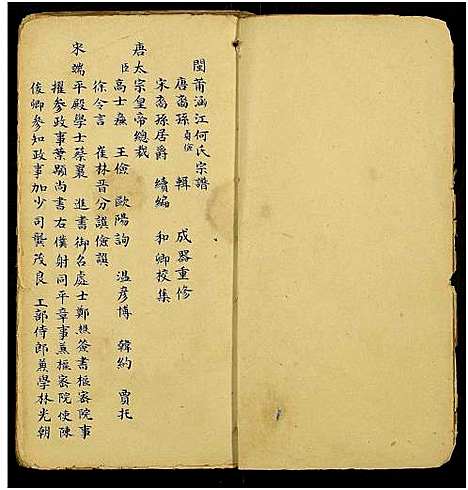 閩莆涵江何氏宗譜
唐裔孫貞儉 輯 成器重修
宋裔孫居爵 續編 和卿校集
唐太宗皇帝總裁
臣高士廉 王儉 歐陽詢 温彦博 韓約 賈托
徐令言 崔林晋分譔儉譔
宋端平殿學士蔡襄 進書御名處士鄭樵簽書樞密院事
擢參政事葉顒尚書右僕射同平章事蒹樞密院使陳
俊卿參知政事加少司龔茂良 工部侍郎蒹學林光朝